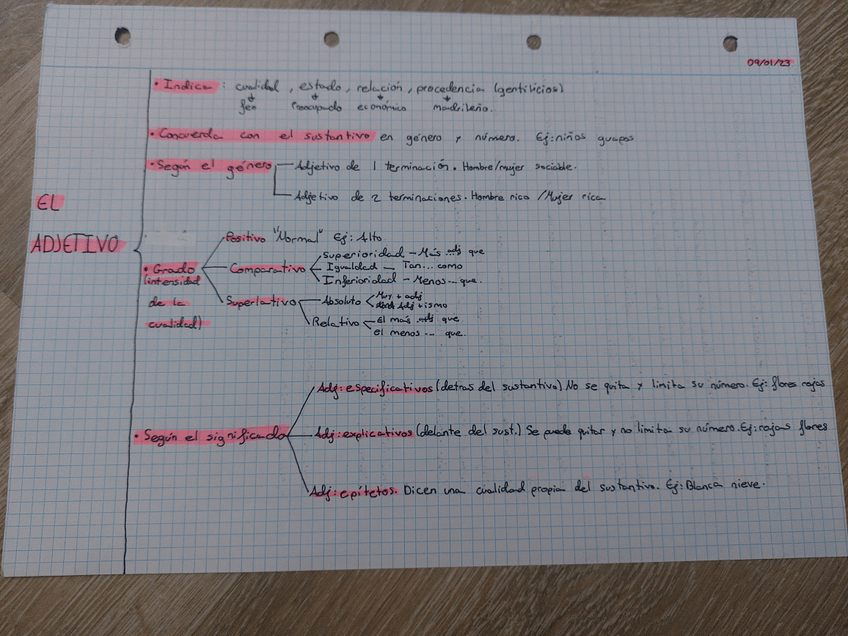 09/01/23
EL
ADJETIVO
• Indica: cualidad, estado, relación, procedencia (gentilicios)
feo Preocupado económico madrileño.
• Concuerda con el sustantivo en género y número. Ej: niños guapos
• Según el género
Adjetivo de 1 terminación. Hombre/mujer sociable.
Adjetivo de 2 terminaciones. Hombre rico / Mujer rica
• Grado
(intensidad
de la
cualidad)
Positivo "Normal" Ej: Alto
Comparativo
Superioridad - Más adj que
Igualdad - Tan... como
Inferioridad - Menos... que.
Superlativo
Absoluto
Muy + adj
Adj + ísimo
Relativo
el más adj que
el menos ... que.
• Según el significado
Adj: especificativos (detras del sustantivo) No se quita y limita su número. Ej: flores rojas
Adj: explicativos (delante del sust.) Se puede quitar y no limita su número. Ej: rojas flores
Adj: epítetos. Dicen una cualidad propia del sustantivo. Ej: Blanca nieve.